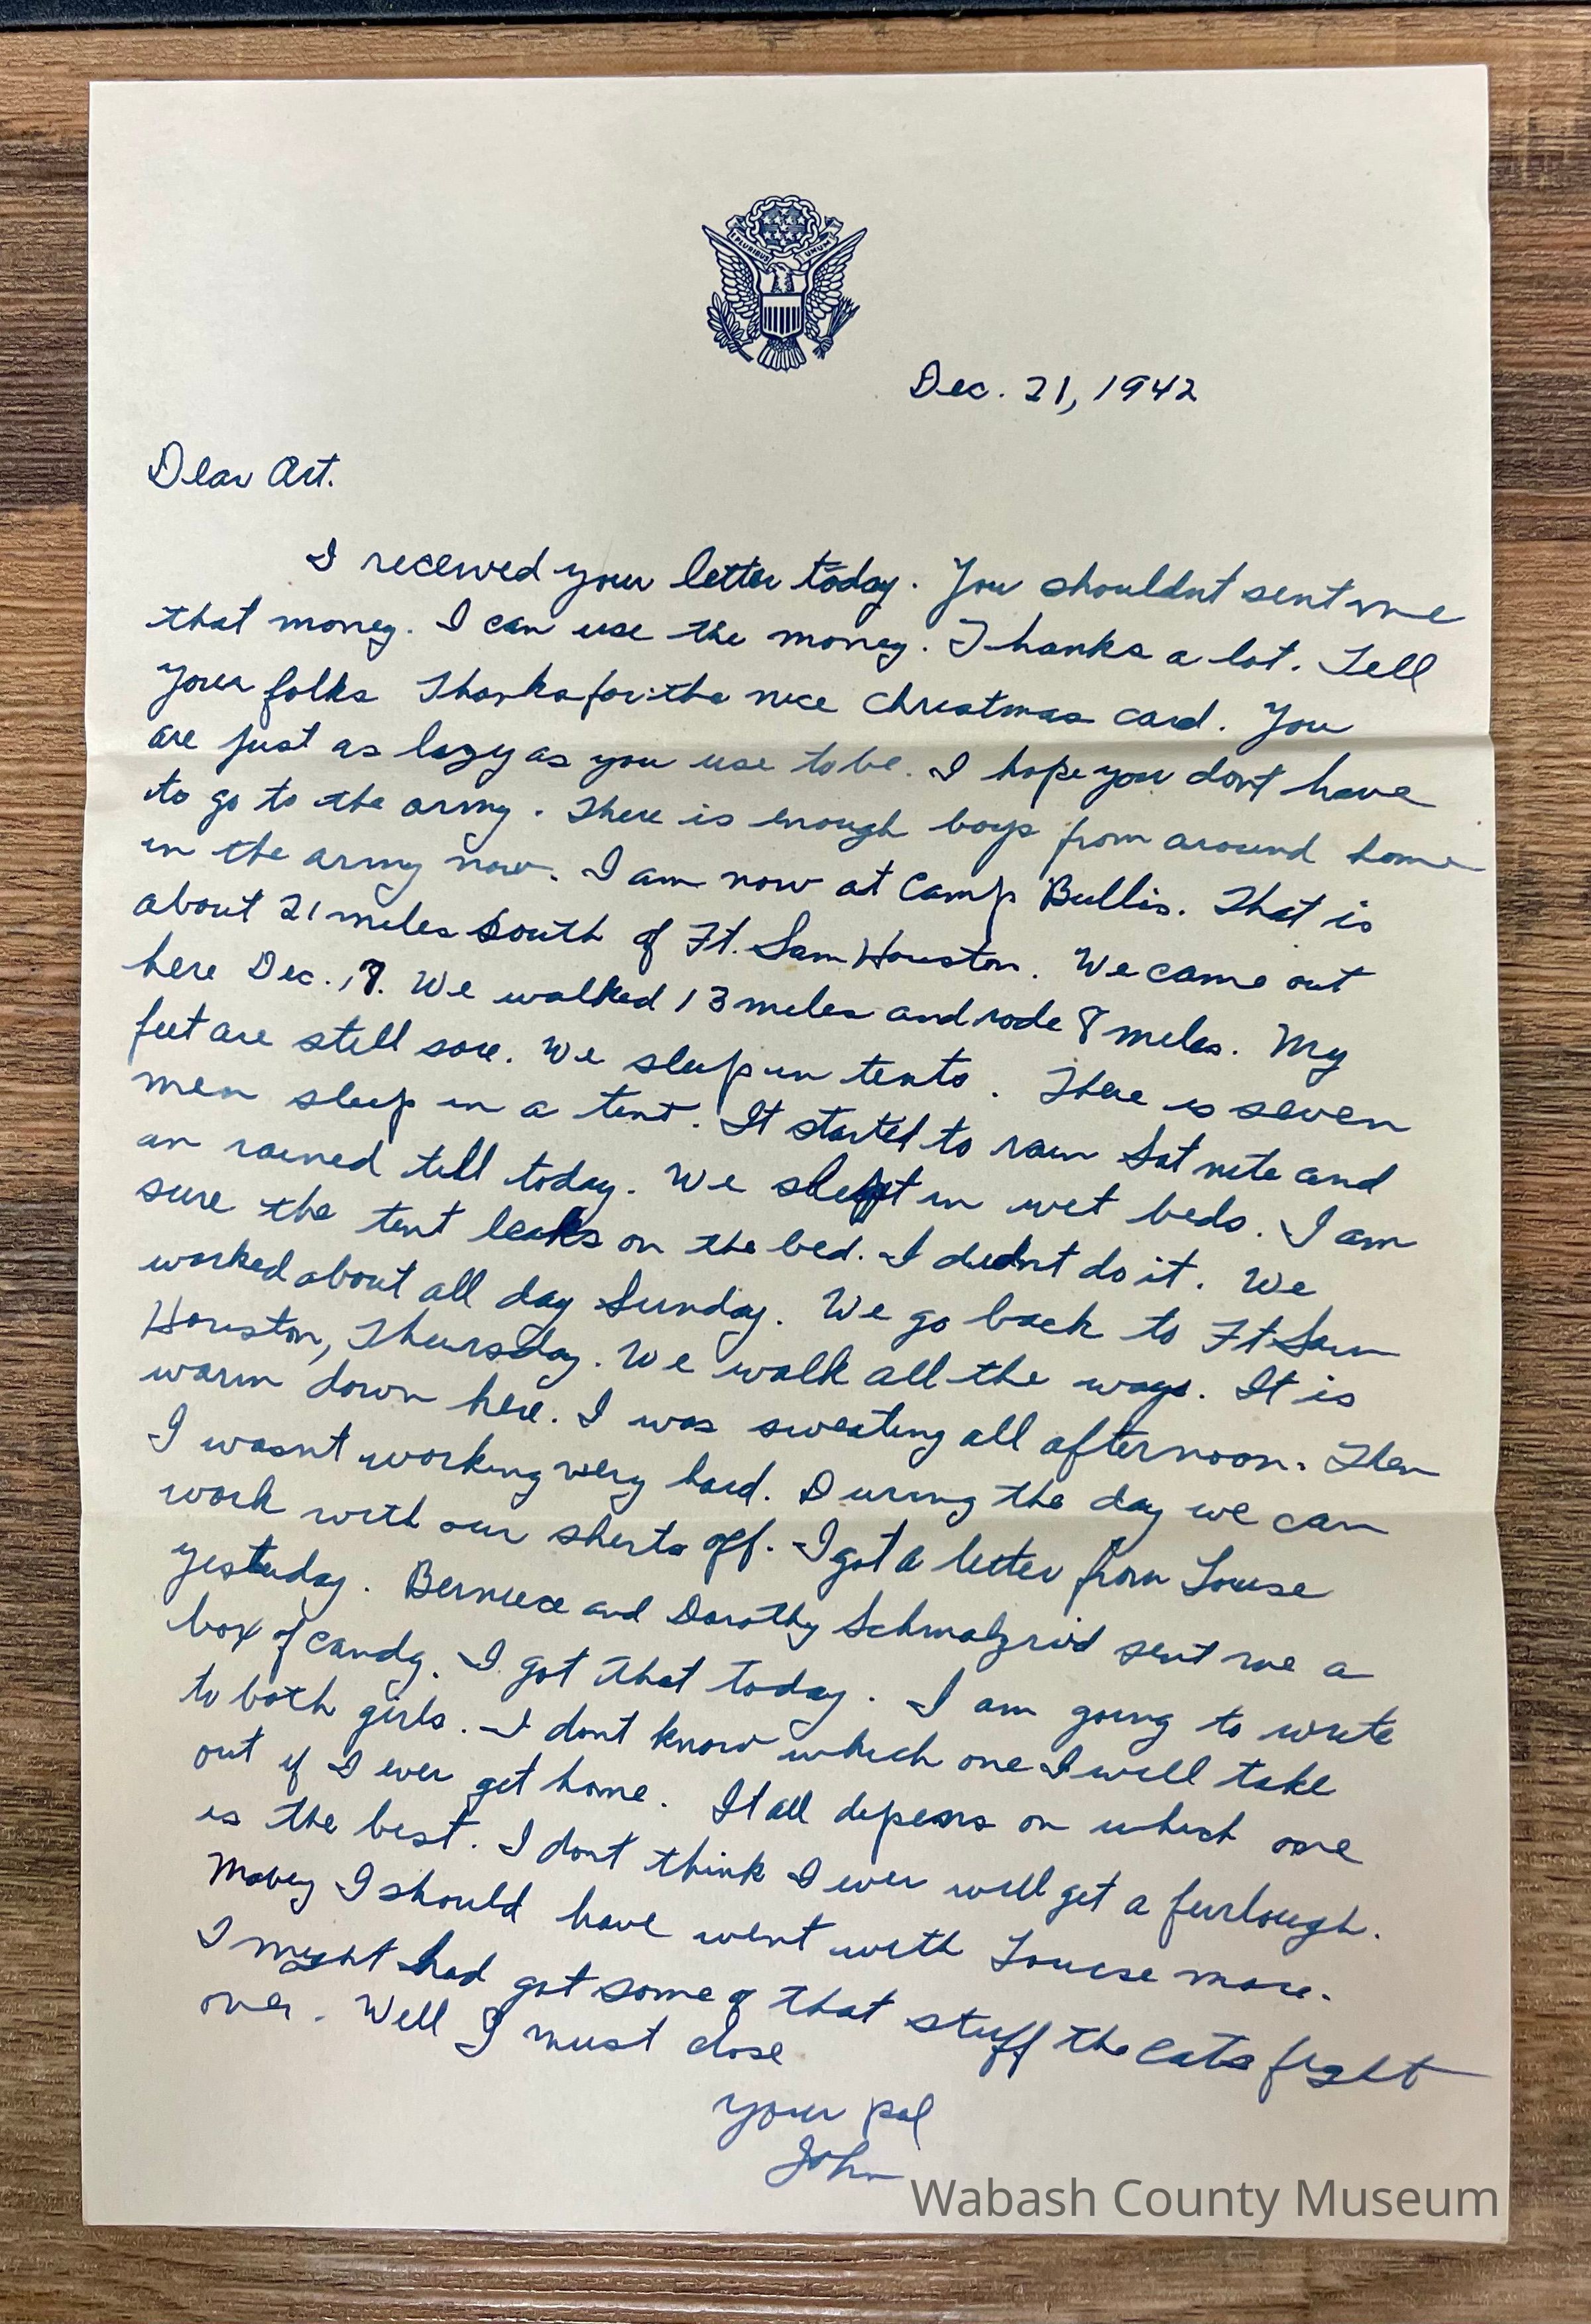 E PLURIBUS UNUM
Dec. 21, 1942
Dear Art.
I received your letter today. You shouldnt sent me
that money. I can use the money. Thanks a lot. Tell
your folks Thanks for the nice Christmas card. You
are just as lazy as you use to be. I hope you dont have
to go to the army. There is enough boys from around home
in the army now. I am now at Camp Bullis. That is
about 21 miles South of Ft. Sam Houston. We came out
here Dec. 17. We walked 13 miles and rode 8 miles. My
feet are still sore. We sleep in tents. There is seven
men sleep in a tent. It started to rain Sat nite and
an rained till today. We slept in wet beds. I am
sure the tent leaks on the bed. I didnt do it. We
worked about all day Sunday. We go back to Ft Sam
Houston, Thursday. We walk all the ways. It is
warm down here. I was sweating all afternoon. Then
I wasnt working very hard. During the day we can
work with our sherts off. I got a letter from Louise
yesterday. Berniece and Dorothy Schmalzrid sent me a
box of candy. I got that today. I am going to write
to both girls. I dont know which one I will take
out if I ever get home. It all depens on which one
is the best. I dont think I ever will get a furlough.
Mabey I should have went with Louise more.
I might had got some of that stuff the cats fight
over. Well I must close
your pal
John
Wabash County Museum